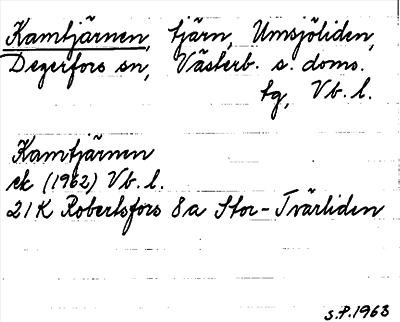 Kamtjärnen, tjärn, Umsjöliden,
Degerfors sn, Västerb. s. doms.
tg, Vb. l.
Kamtjärnen
ek (1962) Vb. l.
21 K Robertsfors 8a Stor-Tvärliden
S.P. 1963